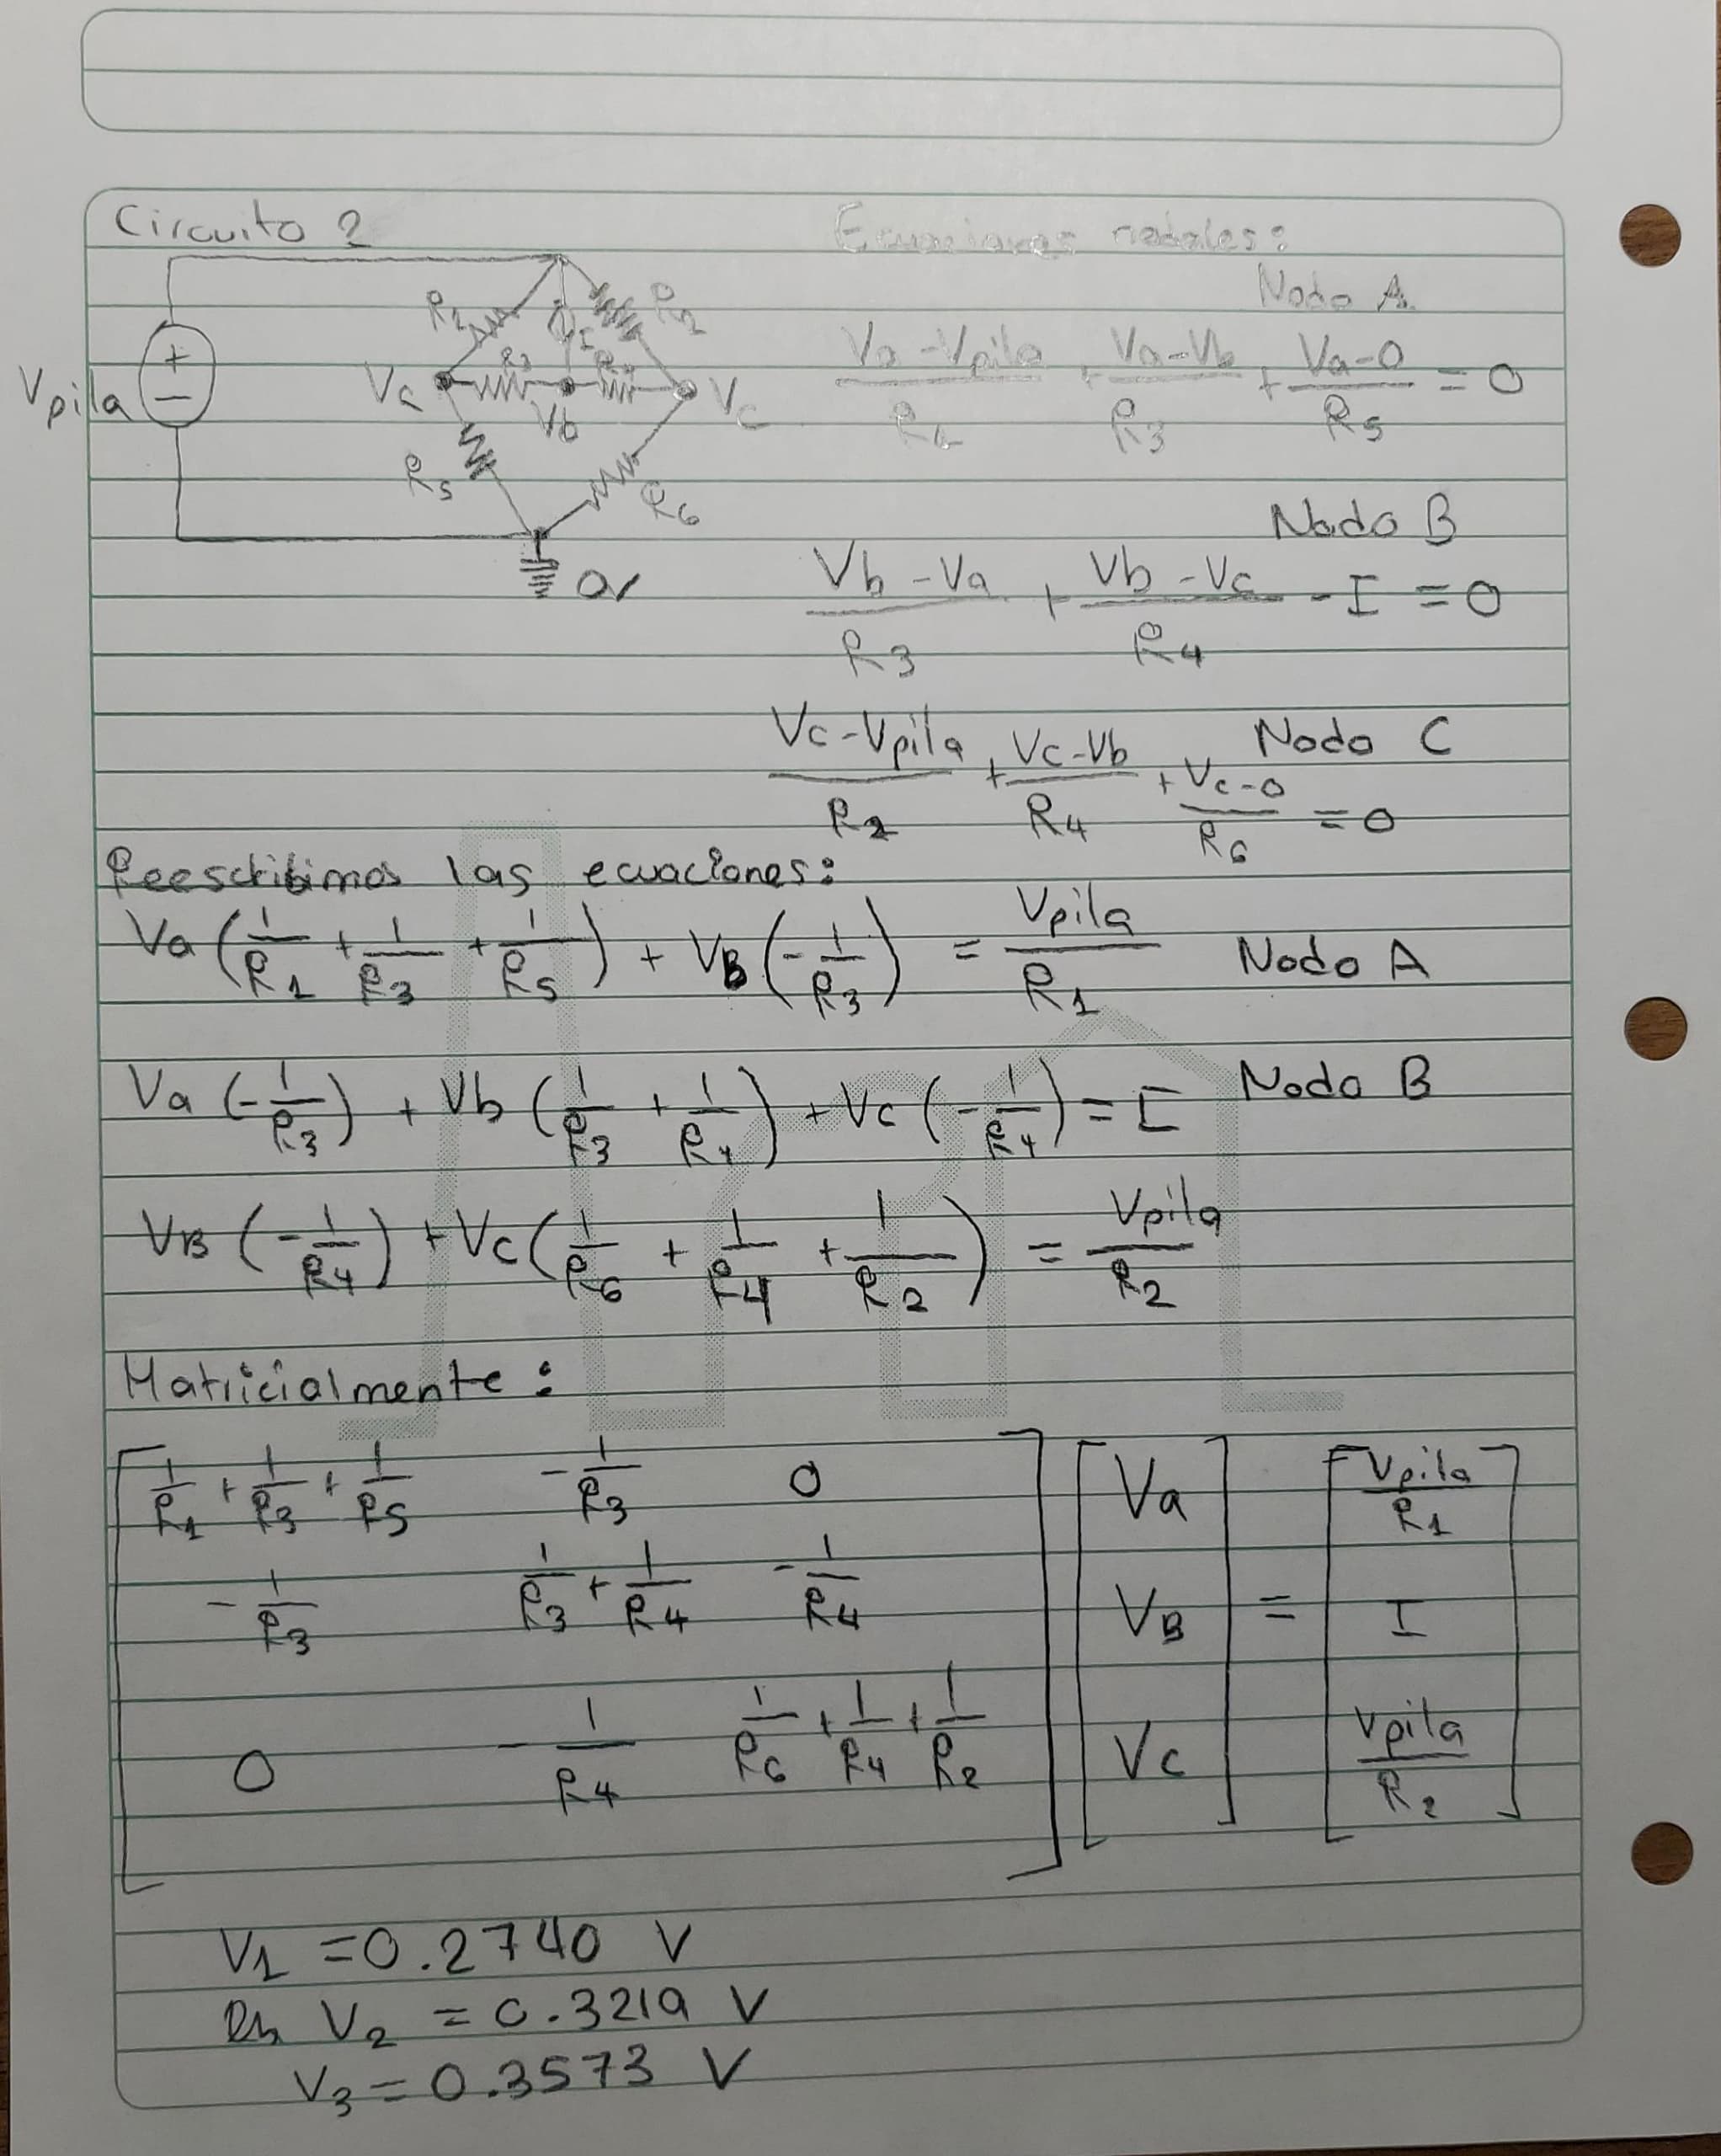 Circuito 2
Ecuaciones nodales:
Vpila
+
-
R1
R2
I
R3
Va
Vb
Vc
R5
R6
0v
Nodo A
(Va - Vpila)/R1 + (Va - Vb)/R3 + (Va - 0)/R5 = 0
Nodo B
(Vb - Va)/R3 + (Vb - Vc)/R4 - I = 0
Nodo C
(Vc - Vpila)/R2 + (Vc - Vb)/R4 + (Vc - 0)/R6 = 0
Reescribimos las ecuaciones:
Va (1/R1 + 1/R3 + 1/R5) + VB (-1/R3) = Vpila/R1 Nodo A
Va (-1/R3) + Vb (1/R3 + 1/R4) + Vc (-1/R4) = I Nodo B
VB (-1/R4) + Vc (1/R6 + 1/R4 + 1/R2) = Vpila/R2
Matricialmente:
1/R1 + 1/R3 + 1/R5 -1/R3 0 Va Vpila/R1
-1/R3 1/R3 + 1/R4 -1/R4 VB = I
0 -1/R4 1/R6 + 1/R4 + 1/R2 Vc Vpila/R2
V1 = 0.2740 V
V2 = 0.3219 V
V3 = 0.3573 V